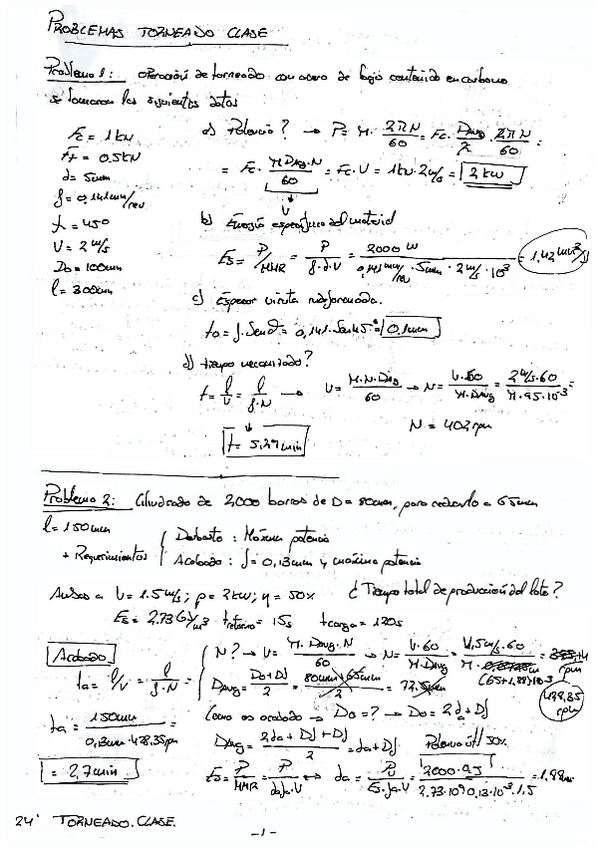 PROBLEMAS TORNEADO CLASE
Problema 1: operación de torneado con acero de bajo contenido en carbono
se tomaron los siguientes datos
Fc = 1kN
Ft = 0,5kN
d = 5mm
f = 0,141mm/rev
t = 45º
V = 2m/s
Do = 100mm
l = 300mm
a) Potencia? → P = M · 2πN/60 = Fc · Davg/2 · 2πN/60 =
= Fc · π Davg · N/60 = Fc · V = 1kN · 2m/s = 2kW
V
b) Energía específica del material
Es = P/MMR = P/f·d·V = 2000 W/0,141mm/rev · 5mm · 2m/s · 10³ = 1,42
c) Espesor viruta indeformada.
to = f · Senθ = 0,141 · Sen45º = 0,1mm
d) tiempo mecanizado?
t = l/v = l/f·N → V = π·N·Davg/60 → N = V·60/π·Davg = 2m/s·60/π·95·10⁻³ =
N = 402rpm
t = 5,29min
Problema 2: Cilindrado de 2000 barras de D = 80mm, para reducirlo a 65mm
l = 150mm
+ Requerimientos
Desbaste : Máxima potencia
Acabado : f = 0,13mm y máxima potencia
Ambas a V = 1.5m/s; p = 2kW; η = 50% ¿Tiempo total de producción del lote?
Es = 2.73 GJ/m³ tretorno = 15s tcarga = 120s
Acabado
N? → V = π·Davg·N/60 → N = V·60/π·Davg = 1,5m/s·60/π·(65+1.88)·10⁻³ =
rpm
428,35 rpm
ta = l/V = l/f·N =
Davg = Do+Df/2 = 80mm+65mm/2 = 72,5mm
Como es acabado → Do = ? → Do = 2da+Df
ta = 150mm/0,13mm·428.35rpm =
Davg = 2da+Df+Df/2 = da+Df
Potencia útil 50%
= 2,7min
Es = P/MMR = P/da·fa·V ↔ da = Pu/Es·fa·V = 2000·0,5/2.73·10⁹·0.13·10⁻³·1.5 = 1.88mm
24' TORNEADO.CLASE.
-1-